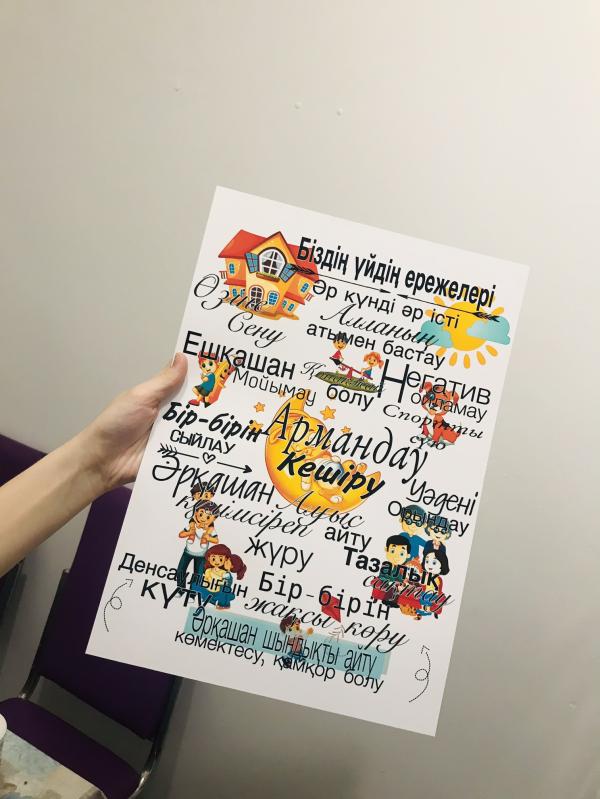 Біздің үйдің ережелері
Әр күнді әр істі
Өзіңе
Алланың
Сену
атымен бастау
Ешқашан
Негатив
Мойымау болу
ойламау
Спортты
сүю
Бір-бірін
Армандау
сыйлау
Кешіру
Әрқашан
Уәдені
Орындау
айту
жүру
Тазалық
сақтау
Денсаулығын
Бір-бірін
күту
жақсы көру
Әрқашан шындықты айту
көмектесу, қамқор болу